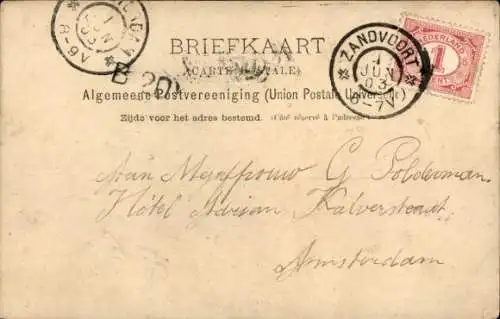 1 JUN 03
BRIEFKAART
(CARTE POSTALE)
Algemeene Postvereeniging (Union Postale Universelle)
Zijde voor het adres bestemd. (Côté réservé à l'adresse)
ZANDVOORT
1 JUN 03
6-7V
NEDERLAND
1
CENT
Aan Mejuffrouw G Polderman.
Hôtel Adrian Kalverstraat
Amsterdam